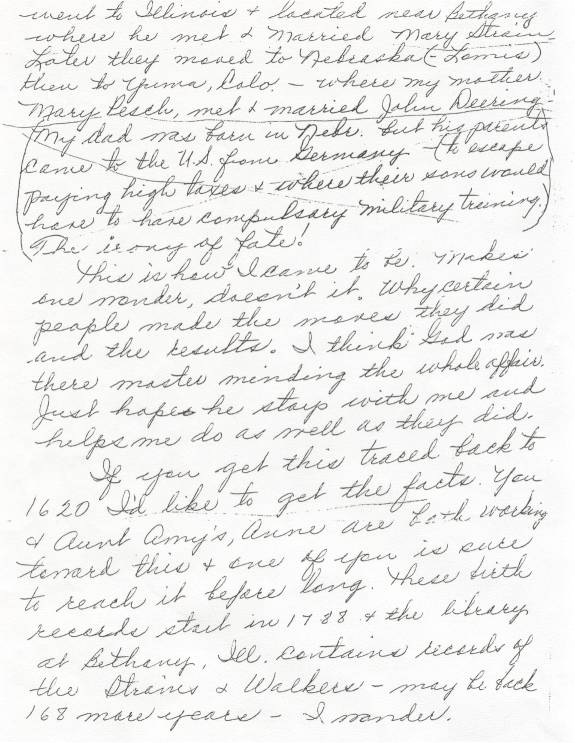 went to Illinois & located near Bethany
where he met & Married Mary Strain
Later they moved to Nebraska (- Loomis)
then to Yuma, Colo. - where my mother
Mary Pesch, met & married John Deering -
(My dad was born in Nebr. but his parents
came to the U.S. from Germany - (to escape
paying high taxes & where their sons would
have to have compulsary military training.)
The irony of fate!)
This is how I came to be. Makes
one wonder, doesn't it. Why certain
people made the moves they did
and the results. I think God was
there master minding the whole affair.
Just hopes he stays with me and
helps me do as well as they did.
If you get this traced back to
1620 I'd like to get the facts. You
& Aunt Amy's, Anne are both working
toward this & one of you is sure
to reach it before long. These birth
records start in 1788 & the library
at Bethany, Ill. contains records of
the Strains & Walkers - may be back
168 more years - I wonder.